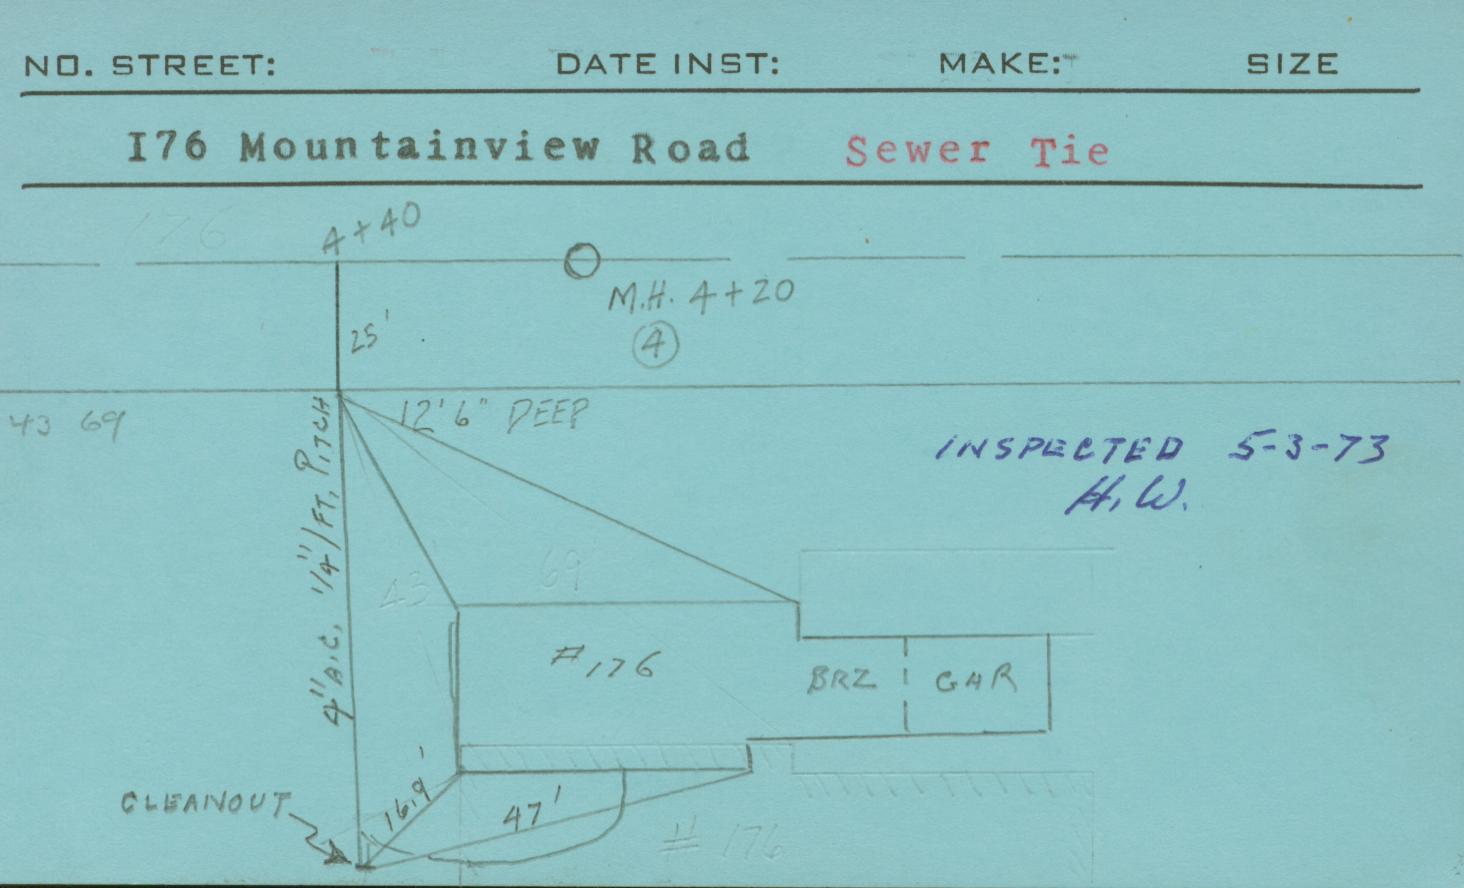 NO. STREET: DATE INST: MAKE: SIZE
I76 Mountainview Road Sewer Tie
176
4+40
M.H. 4+20
4
25'
43 69
12'6" DEEP
4" A.C. 1/4"/FT. PITCH
INSPECTED 5-3-73
H.W.
43
69'
#176
BRZ GAR
CLEANOUT
16.9'
47'
# 176